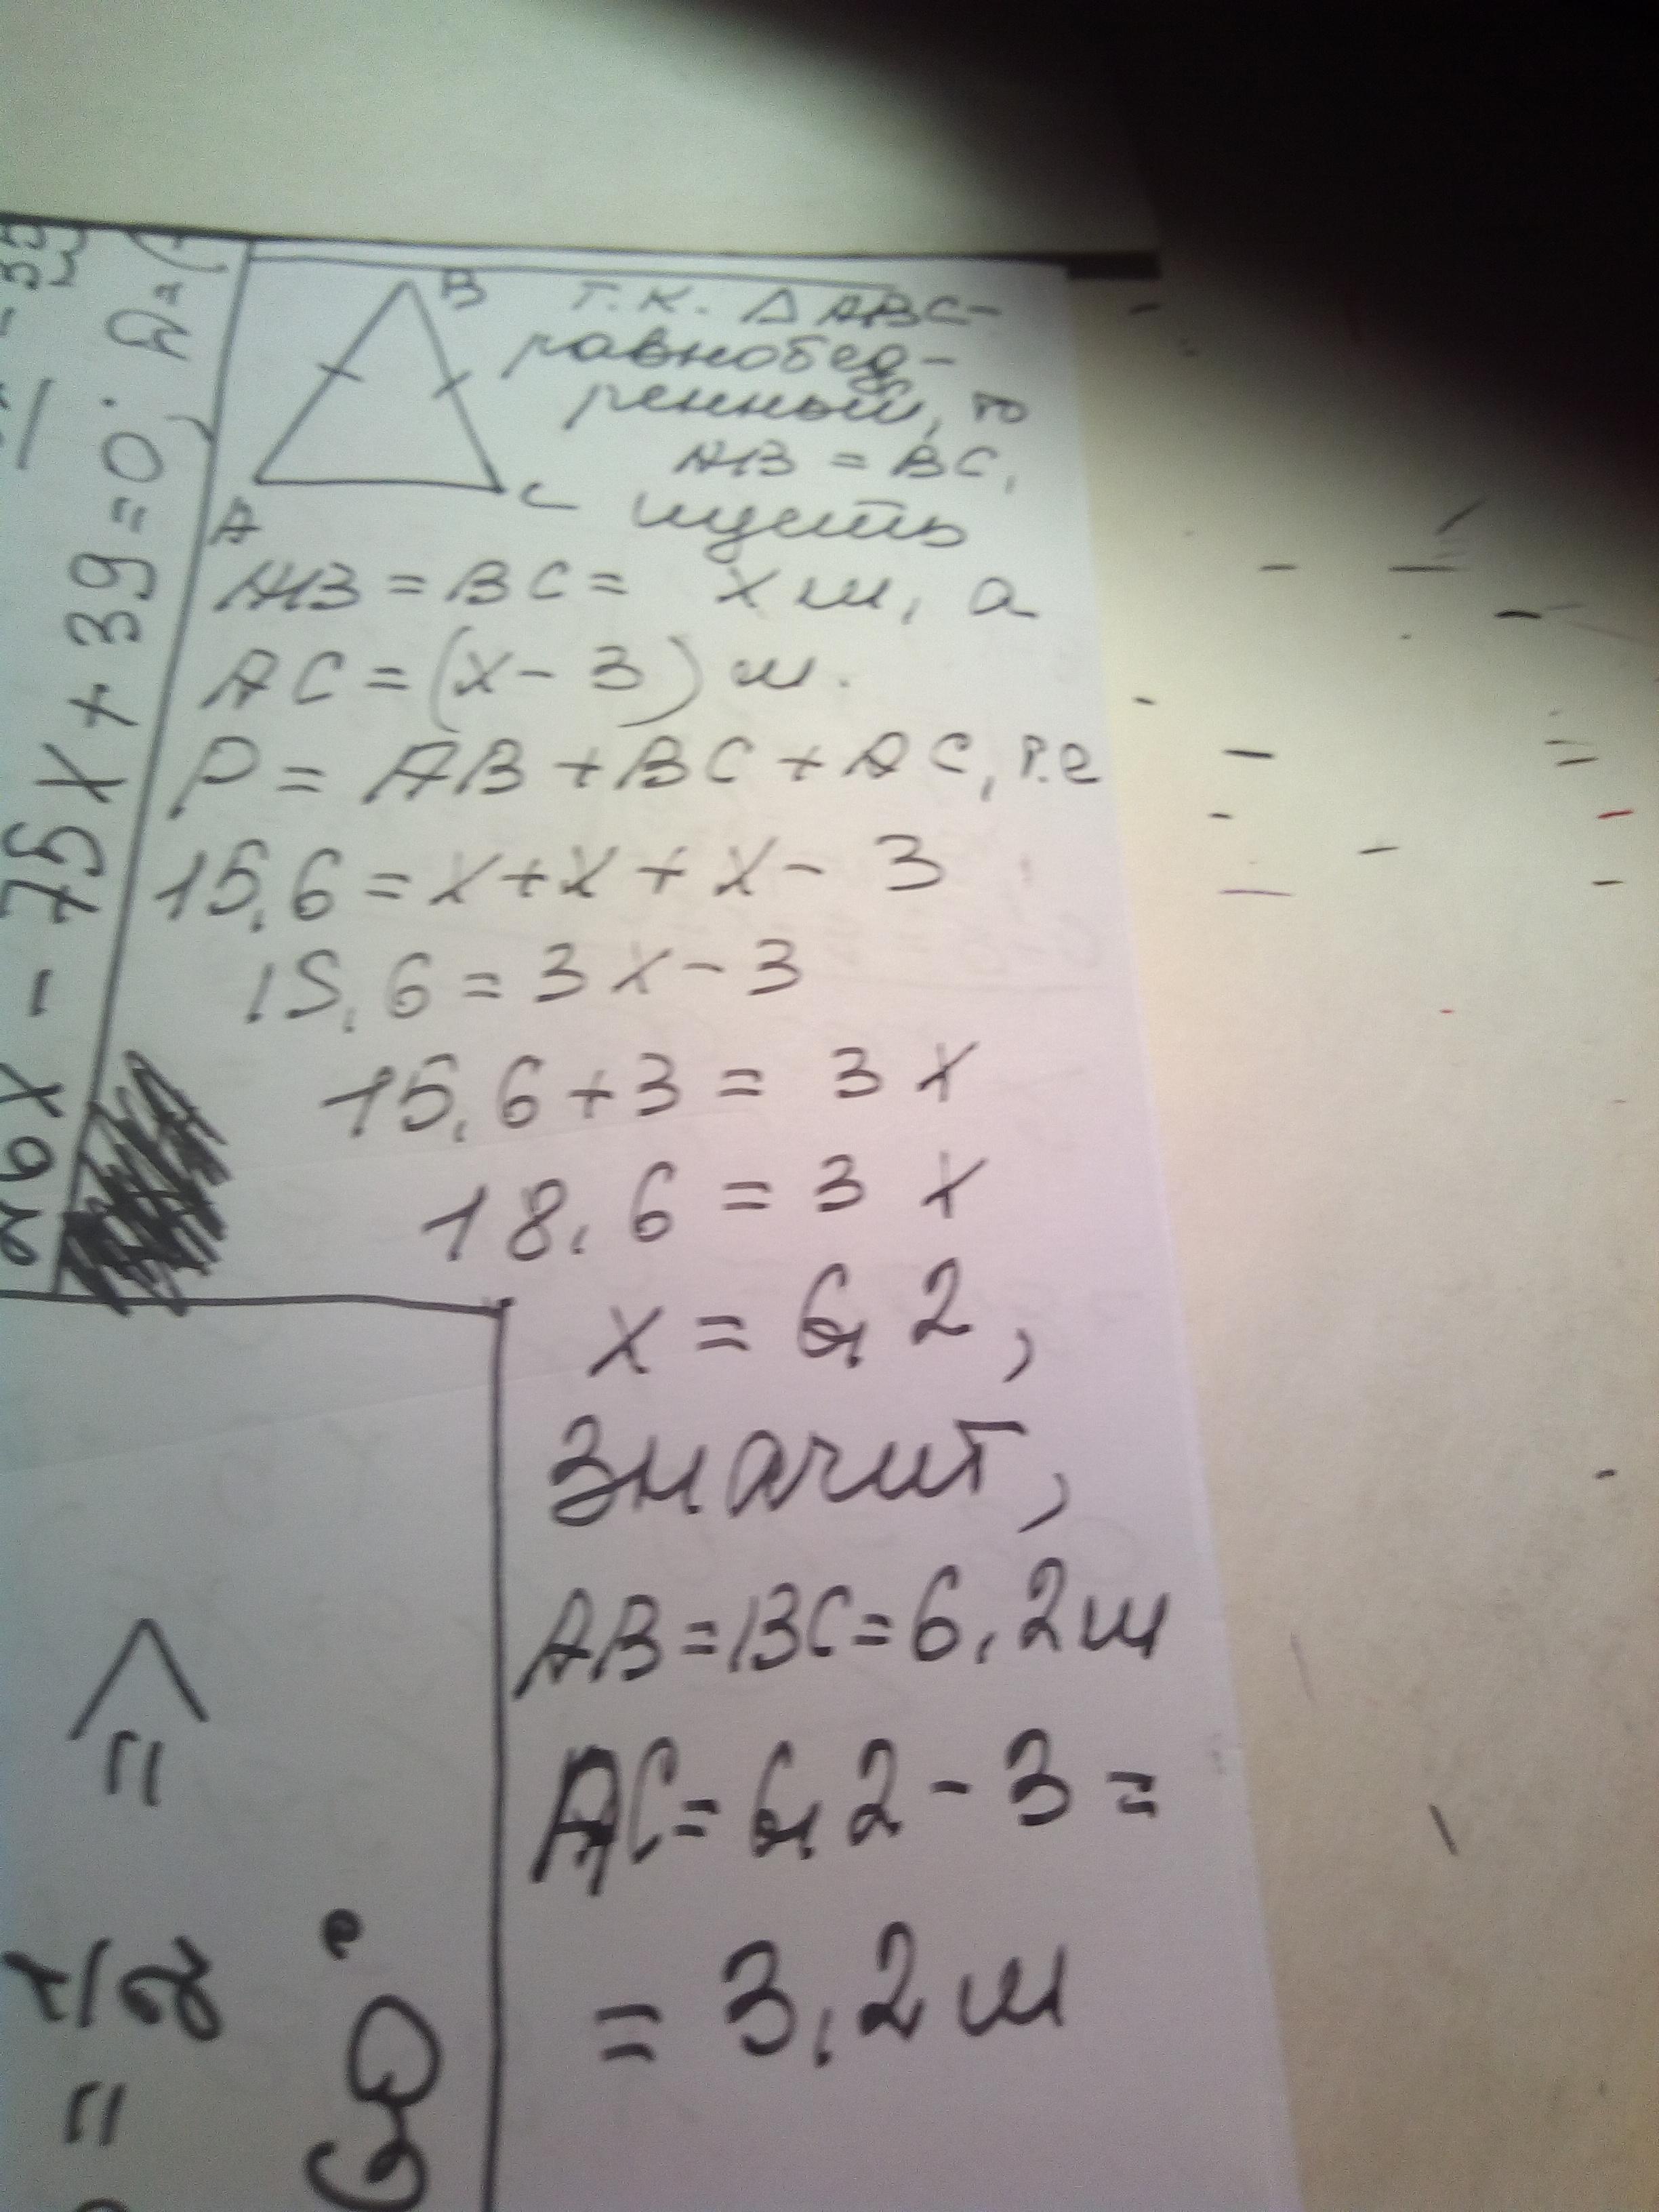 B
т.к. △ ABC-
равнобед-
ренный, то
AB = BC,
C
пусть
A
AB = BC = x м, а
AC = (x - 3) м.
P = AB + BC + AC, т.е
15,6 = x + x + x - 3
15,6 = 3x - 3
15,6 + 3 = 3x
18,6 = 3x
x = 6,2,
Значит,
AB = BC = 6,2 м
AC = 6,2 - 3 =
= 3,2 м
- 75x + 39 = 0;